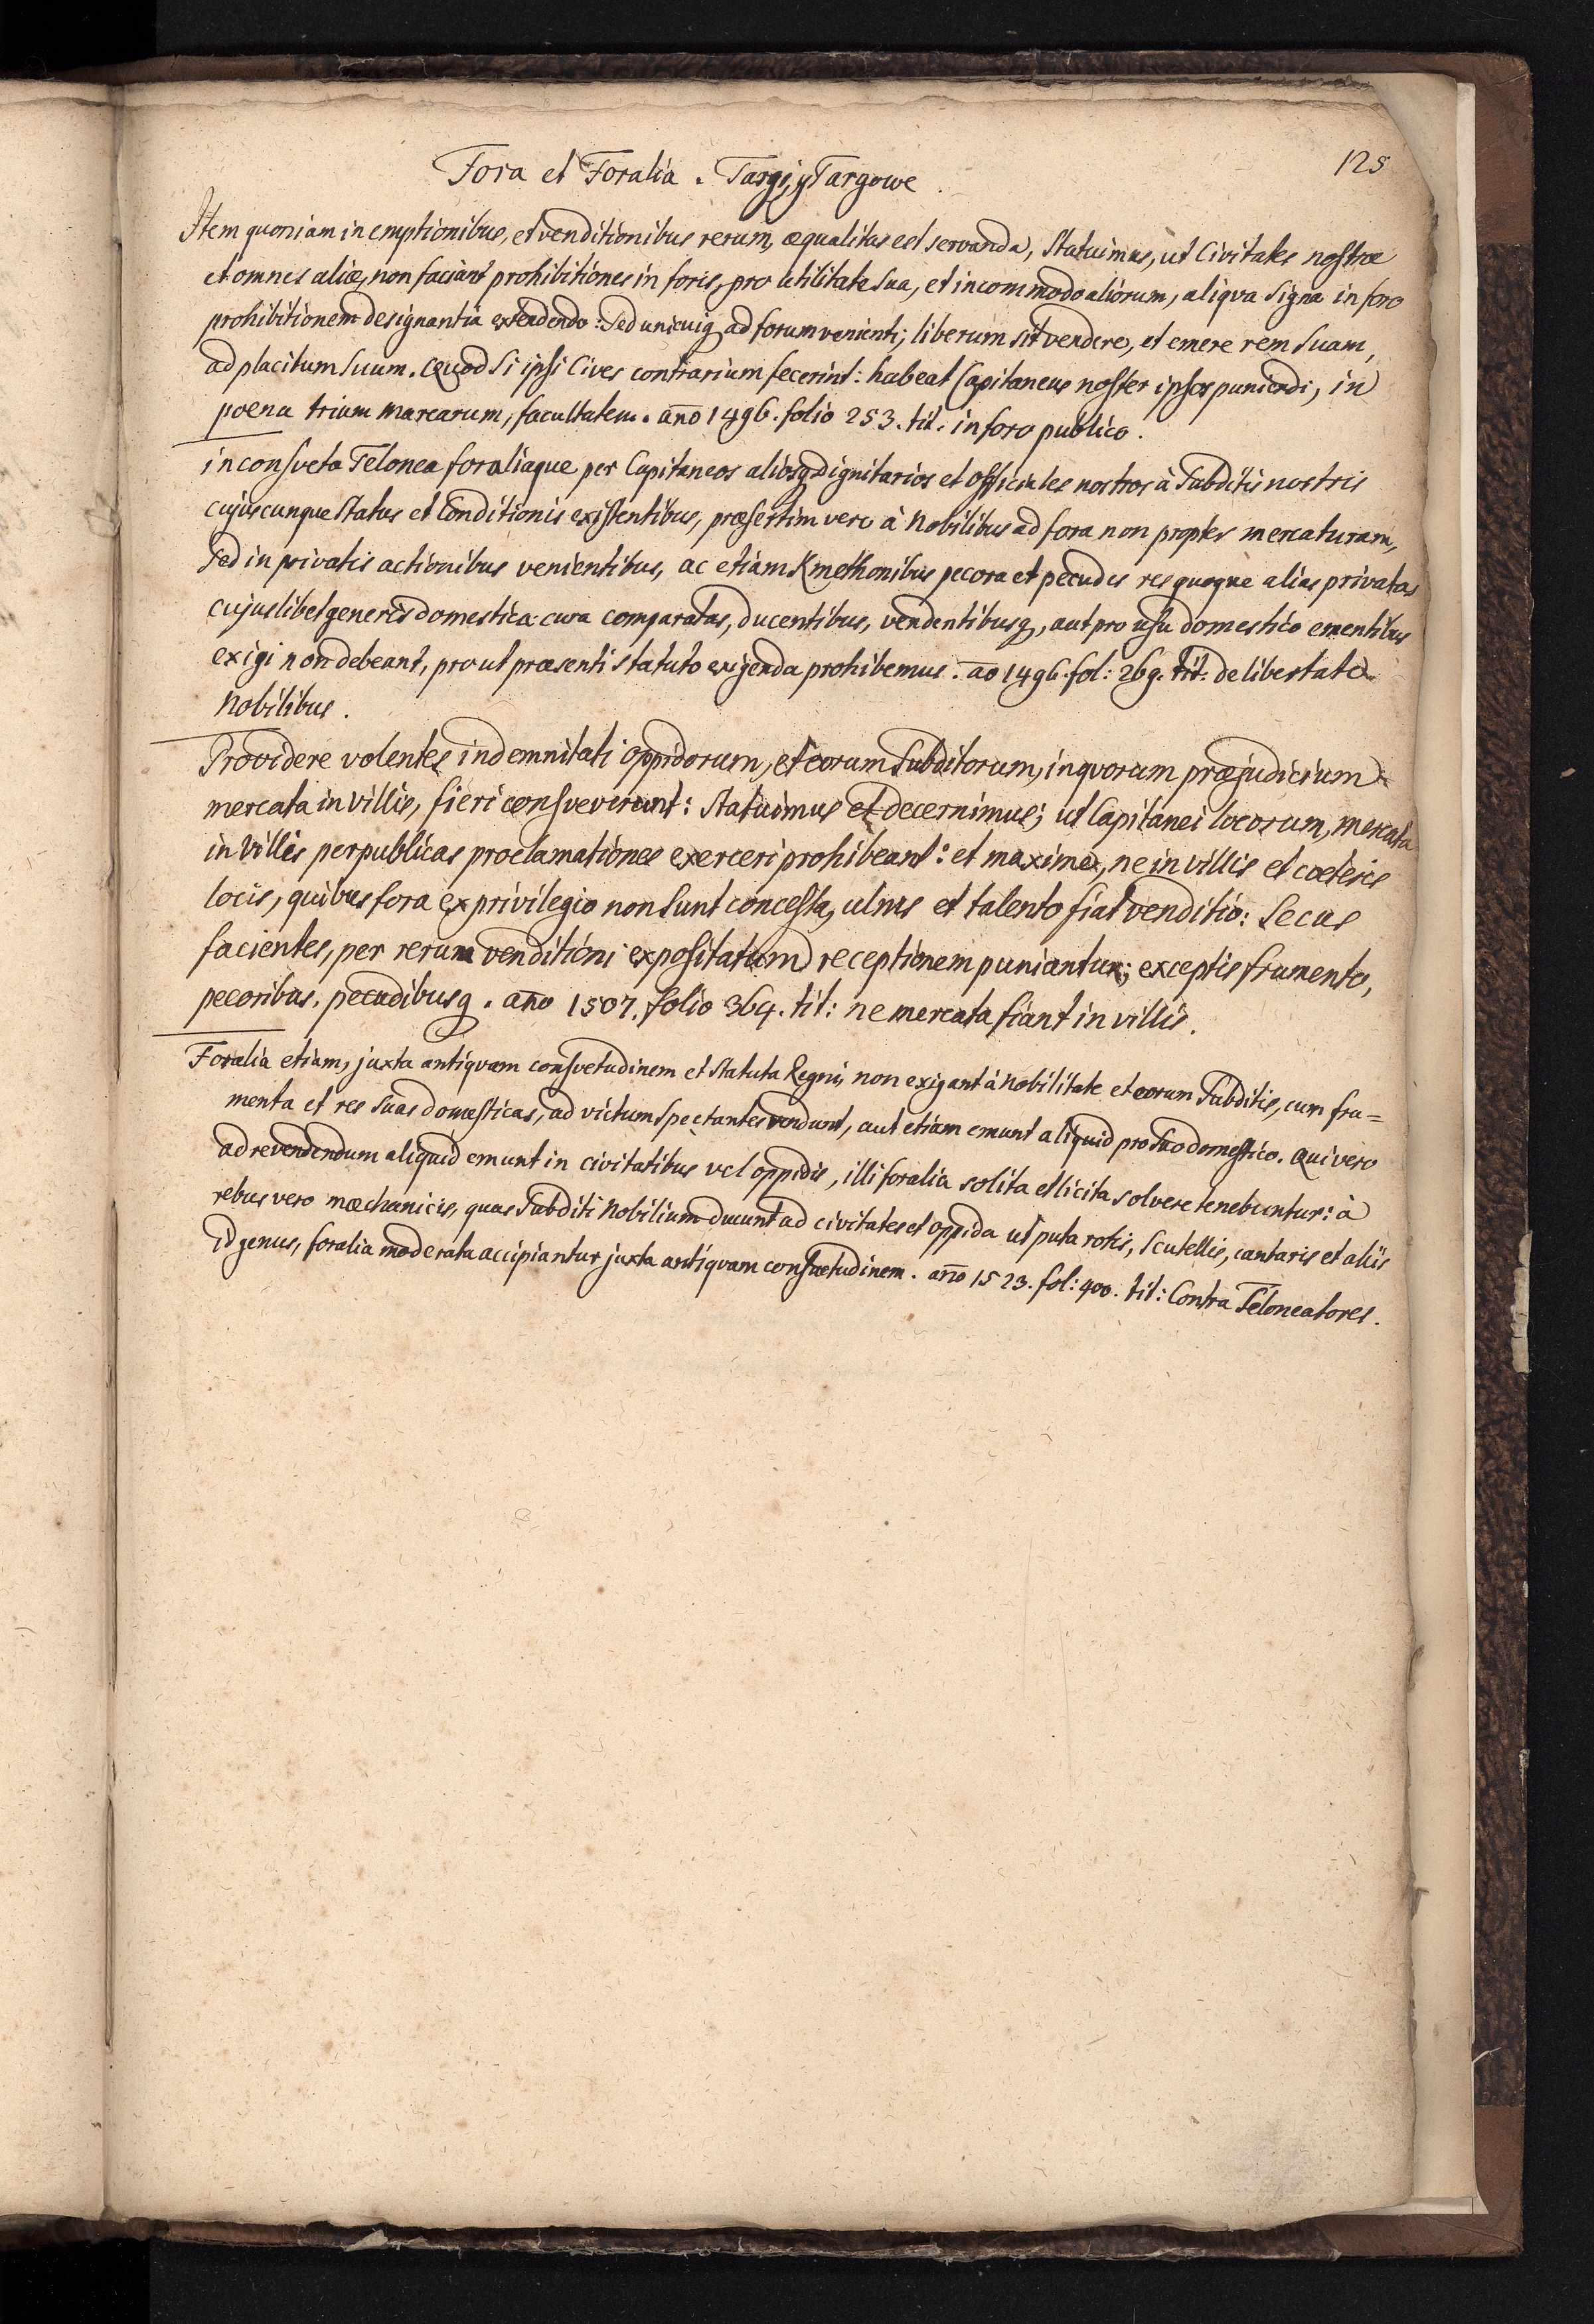 125
Fora et Foralia. Targi, y Targowe.
Item quoniam in emptionibus, et venditionibus rerum, æqualitas est servanda, Statuimus, ut Civitates nostræ
et omnes aliæ, non faciant prohibitiones in foris, pro utilitate sua, et incommodo aliorum, aliqva signa in foro
prohibitionem designantia extendendo: Sed unicuiq ad forum venienti; liberum sit vendere, et emere rem suam,
ad placitum suum. Quod si ipsi Cives contrarium fecerint: habeat Capitaneus noster ipsos puniendi, in
poena trium marcarum, facultatem. año 1496. folio 253. tit. in foro publico.
inconsveta Telonea foraliaque per Capitaneos aliosq dignitarios et officiales nostros à Subditis nostris
cujuscunque Status et Conditionis existentibus, præsertim vero à Nobilibus ad fora non propter mercaturam,
Sed in privatis actionibus venientibus, ac etiam Kmethonibus pecora et pecudes res quoque alias privatas
cujuslibet generis domestica cura comparatas, ducentibus, vendentibusq, aut pro usu domestico ementibus
exigi non debeant, prout præsenti statuto exigenda prohibemus. ao 1496. fol: 269. tit: de libertate
Nobilibus.
Providere volentes indemnitati oppidorum, et eorum Subditorum, in qvorum præjudicium
mercata in villis, fieri consveverunt: Statuimus et decernimus; ut Capitanei locorum, mercata
in Villis per publicas proclamationes exerceri prohibeant: et maxime, ne in villis et cæteris
locis, quibus fora ex privilegio non sunt concessa, ulnis et talento fiat venditio: Secus
facientes, per rerum venditioni expositatum receptionem puniantur; exceptis frumento,
pecoribus, pecudibusq. año 1507. folio 364. tit: ne mercata fiant in villis.
Foralia etiam, juxta antiqvam consvetudinem et Statuta Regni, non exigant à Nobilitate et eorum Subditis, cum fru=
menta et res suas domesticas, ad victum spectantes vendunt, aut etiam emunt aliquid pro suo domestico. Qui vero
ad revendendum aliquid emunt in civitatibus vel oppidis, illi foralia solita et licita solvere tenebuntur: à
rebus vero mæchanicis, quas Subditi Nobilium ducunt ad civitates et oppida ut puta rotis, Scutellis, cantaris et aliis
id genus, foralia moderata accipiantur juxta antiqvam consuetudinem. año 1523. fol: 400. tit: Contra Teloneatores.